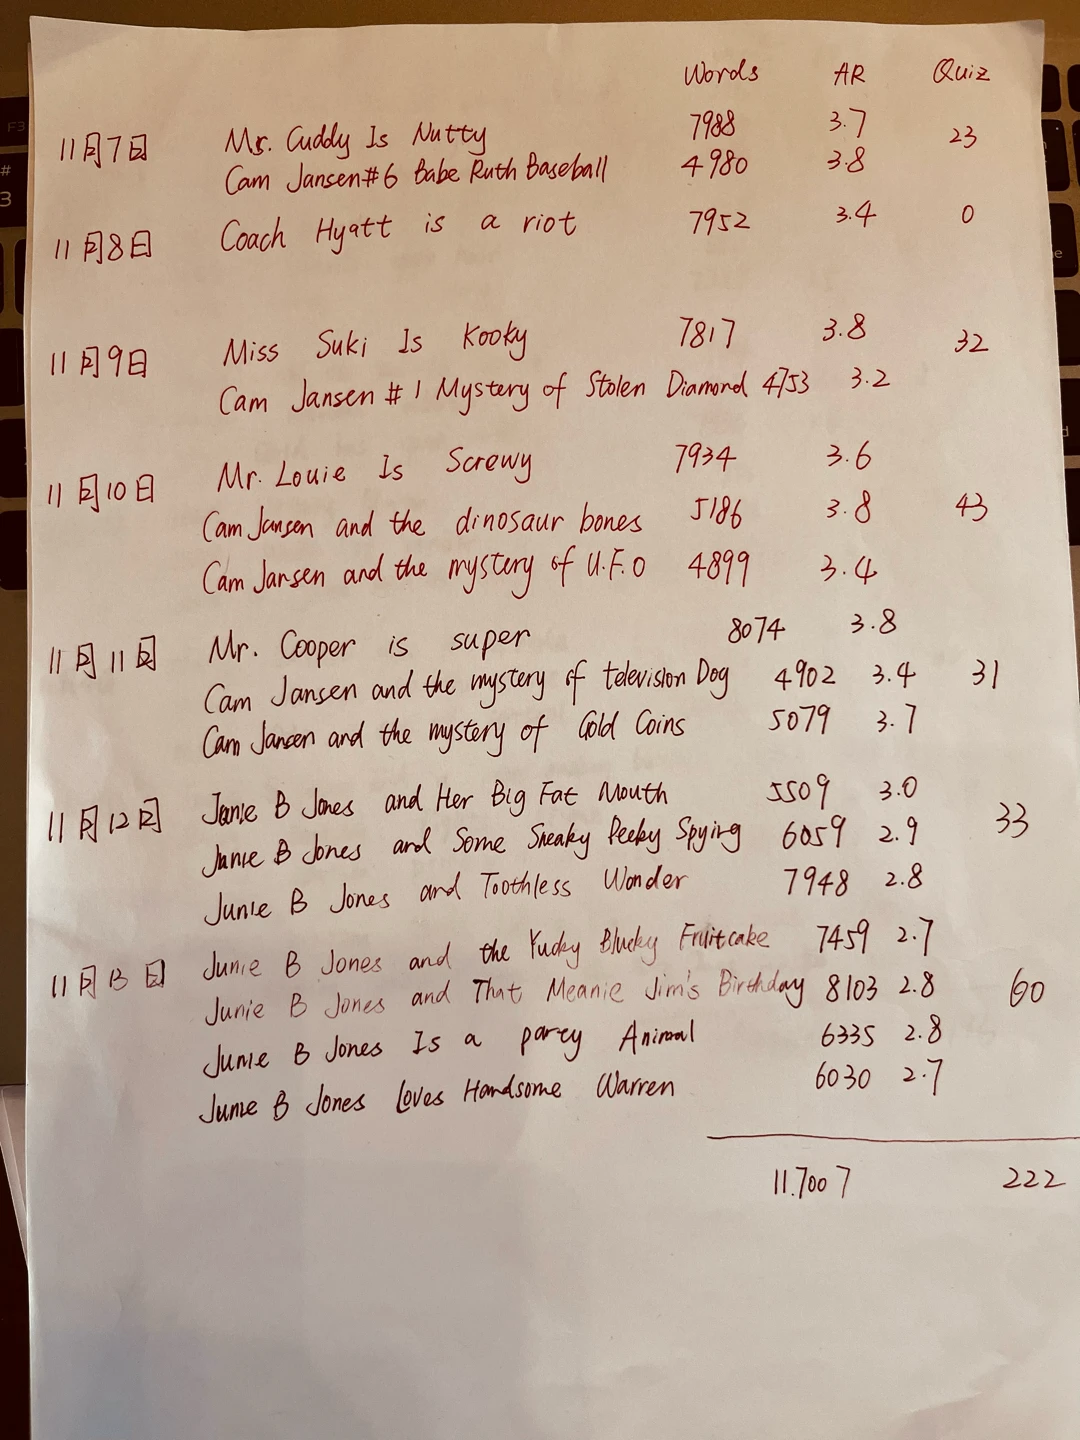 Words AR Quiz
11月7日 Mr. Cuddy Is Nutty 7988 3.7 23
Cam Jansen #6 Babe Ruth Baseball 4980 3.8
11月8日 Coach Hyatt is a riot 7952 3.4 0
11月9日 Miss Suki Is Kooky 7817 3.8 32
Cam Jansen # 1 Mystery of Stolen Diamond 4753 3.2
11月10日 Mr. Louie Is Screwy 7934 3.6
Cam Jansen and the dinosaur bones 5186 3.8 43
Cam Jansen and the mystery of U.F.O 4899 3.4
11月11日 Mr. Cooper is super 8074 3.8
Cam Jansen and the mystery of television Dog 4902 3.4 31
Cam Jansen and the mystery of Gold Coins 5079 3.7
11月12日 Junie B Jones and Her Big Fat Mouth 5509 3.0
Junie B Jones and Some Sneaky Peeky Spying 6059 2.9 33
Junie B Jones and Toothless Wonder 7948 2.8
Junie B Jones and the Yucky Blucky Fruitcake 7459 2.7
11月13日 Junie B Jones and That Meanie Jim's Birthday 8103 2.8 60
Junie B Jones Is a party Animal 6335 2.8
Junie B Jones Loves Handsome Warren 6030 2.7
11.7007 222